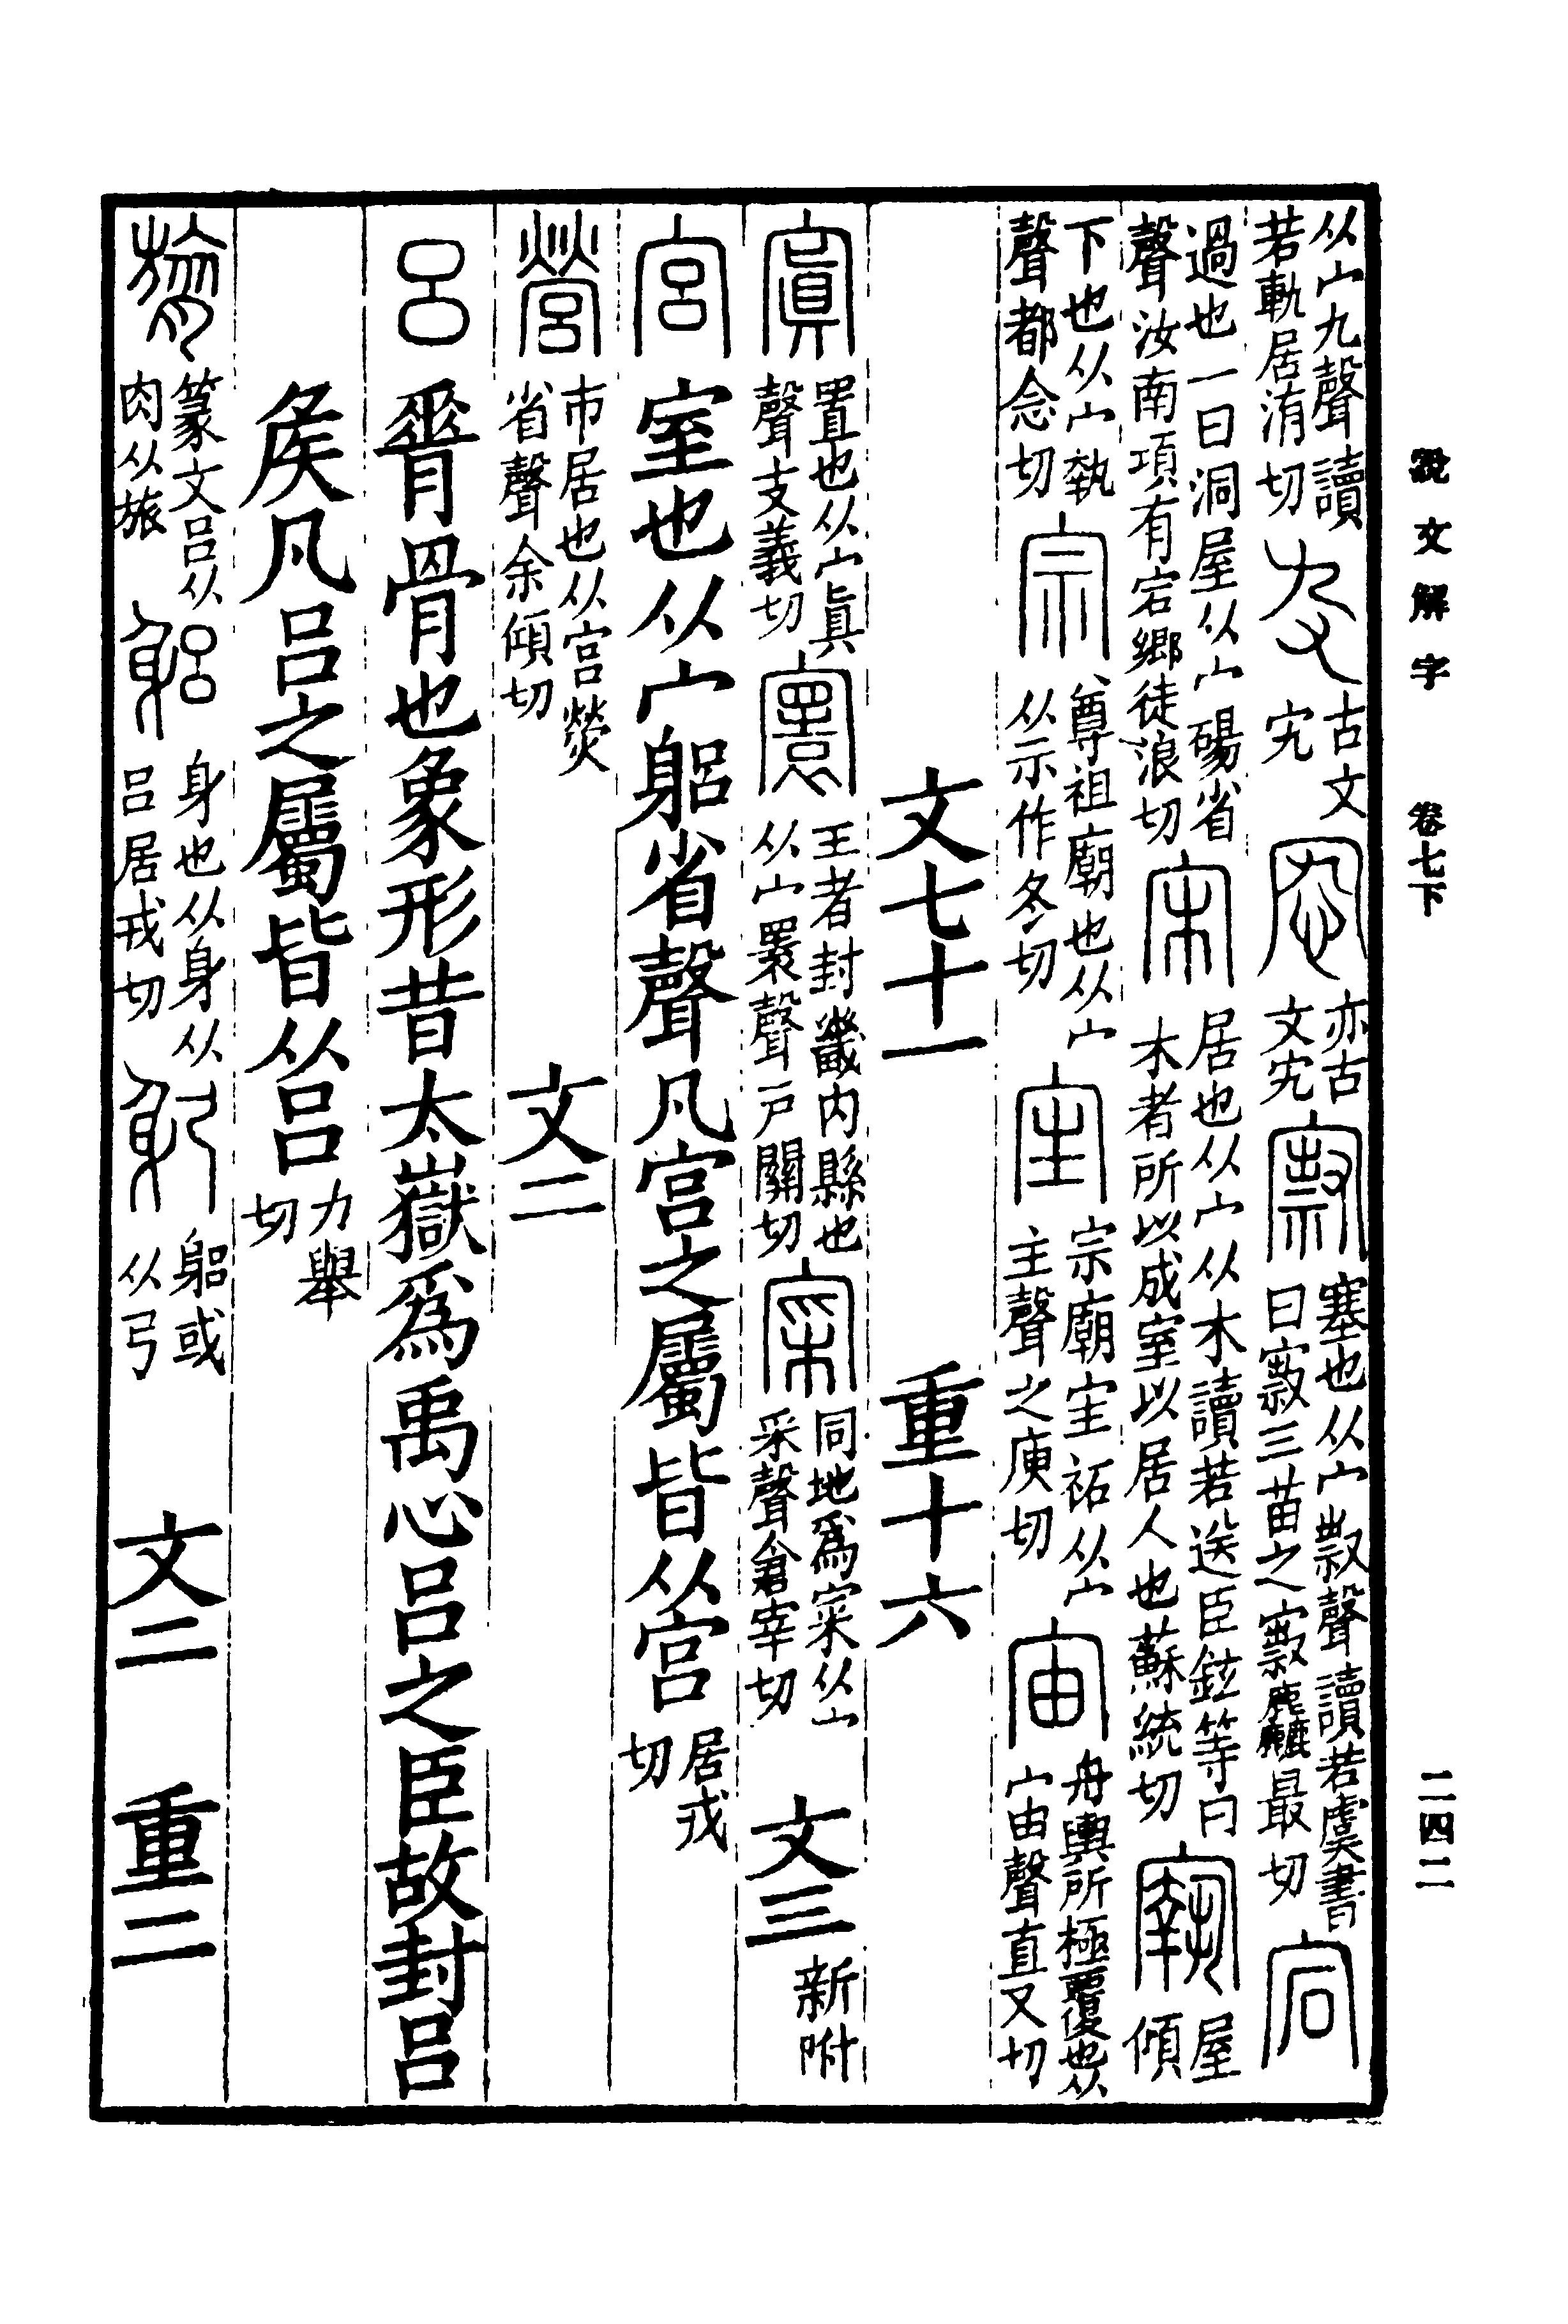 說文解字 卷七下 二四二
从宀九聲讀若軌居洧切 古文宄 亦古文宄 𥨥 塞也从宀𣀳聲讀若虞書曰𥨥三苗之𥨥麤最切 宕
過也一曰洞屋从宀碭省聲汝南項有宕鄉徒浪切 宋 居也从宀从木讀若送臣鉉等曰木者所以成室以居人也蘇統切 㝪 屋傾
下也从宀執聲都念切 宗 尊祖廟也从宀从示作冬切 宔 宗廟宔祏从宀主聲之庾切 宙 舟輿所極覆也从宀由聲直又切
文七十一 重十六
寘 置也从宀眞聲支義切 寰 王者封畿內縣也从宀瞏聲戶關切 寀 同地爲寀从宀采聲倉宰切 文三新附
宮 室也从宀躳省聲凡宮之屬皆从宮居戎切
營 市居也从宮熒省聲余傾切 文二
呂 脊骨也象形昔太嶽爲禹心呂之臣故封呂
矦凡呂之屬皆从呂力舉切
膂 篆文呂从肉从旅 躳 身也从身从呂居戎切 躬 躳或从弓 文二 重二